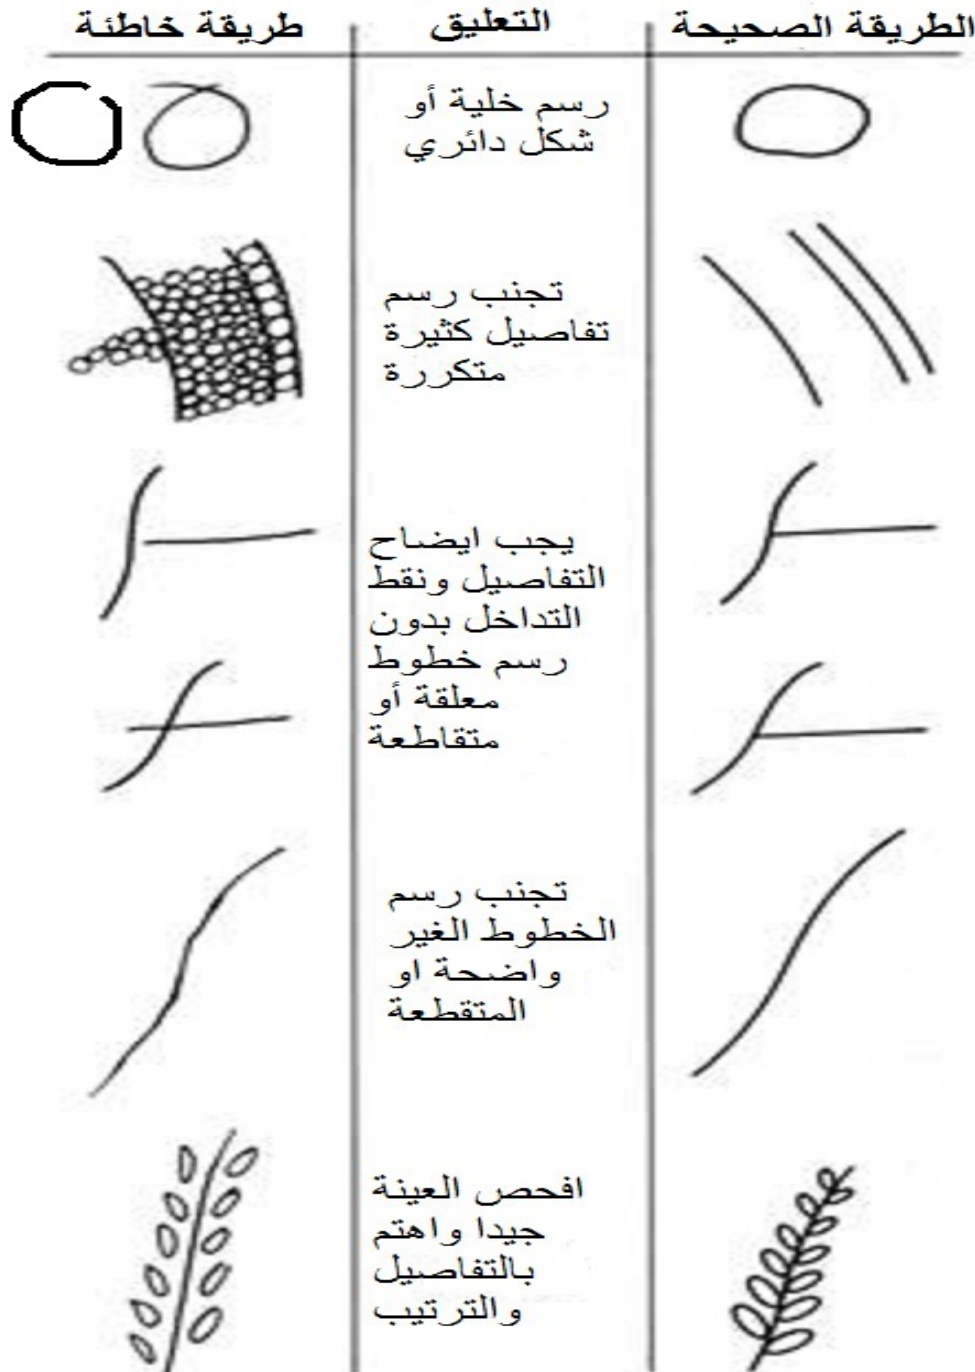 الطريقة الصحيحة
التعليق
طريقة خاطئة
رسم خلية أو
شكل دائري
تجنب رسم
تفاصيل كثيرة
متكررة
يجب ايضاح
التفاصيل ونقط
التداخل بدون
رسم خطوط
معلقة أو
متقاطعة
تجنب رسم
الخطوط الغير
واضحة او
المتقطعة
افحص العينة
جيدا واهتم
بالتفاصيل
والترتيب